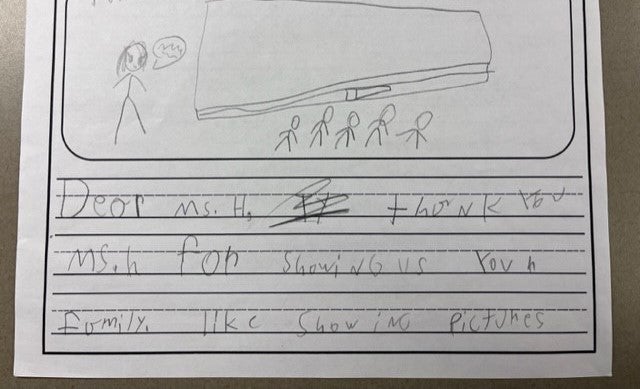 Dear Ms. H, thank you
Ms. h for showing us your
family. like showing pictures